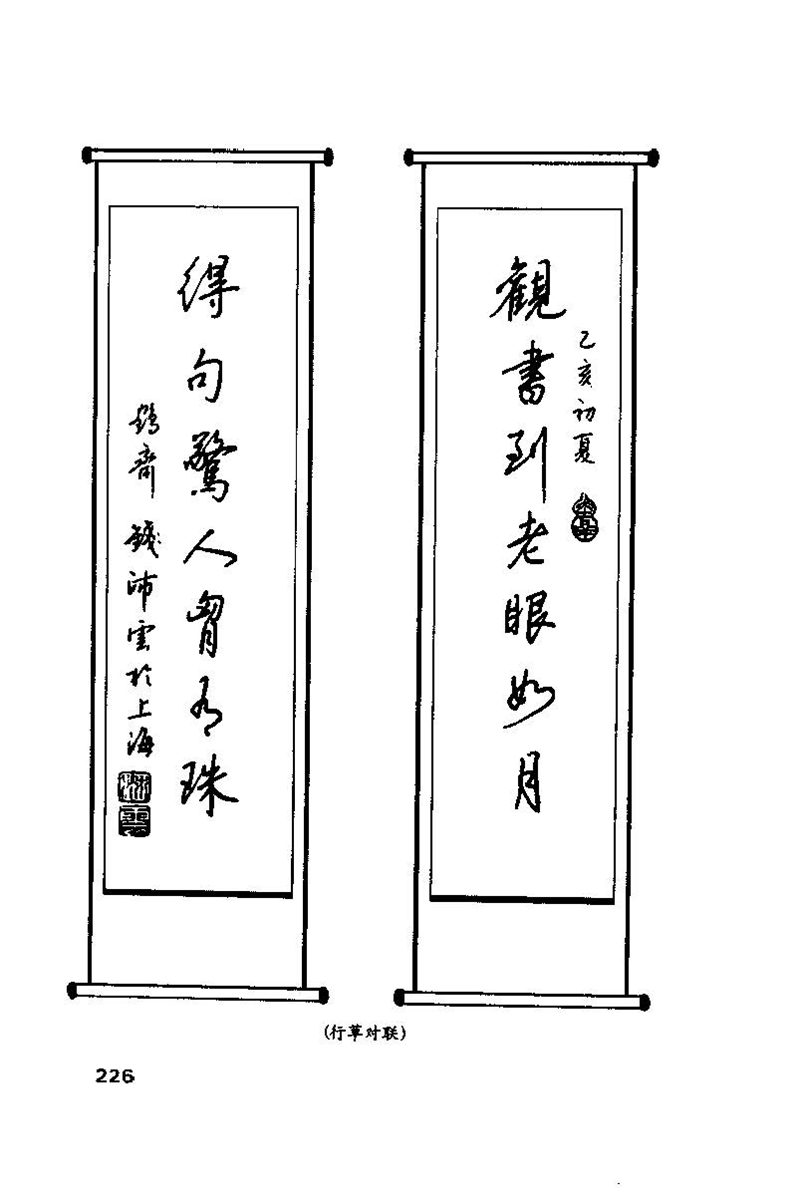 觀書到老眼如月
乙亥初夏
得句驚人胷有珠
齋 錢沛雲於上海
沛雲
(行草对联)
226